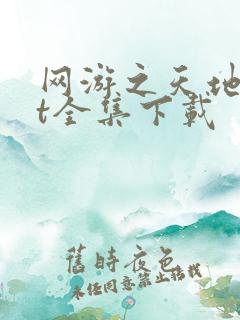 网游之天地
t全集下载
舊時夜色
未经同意禁止转载